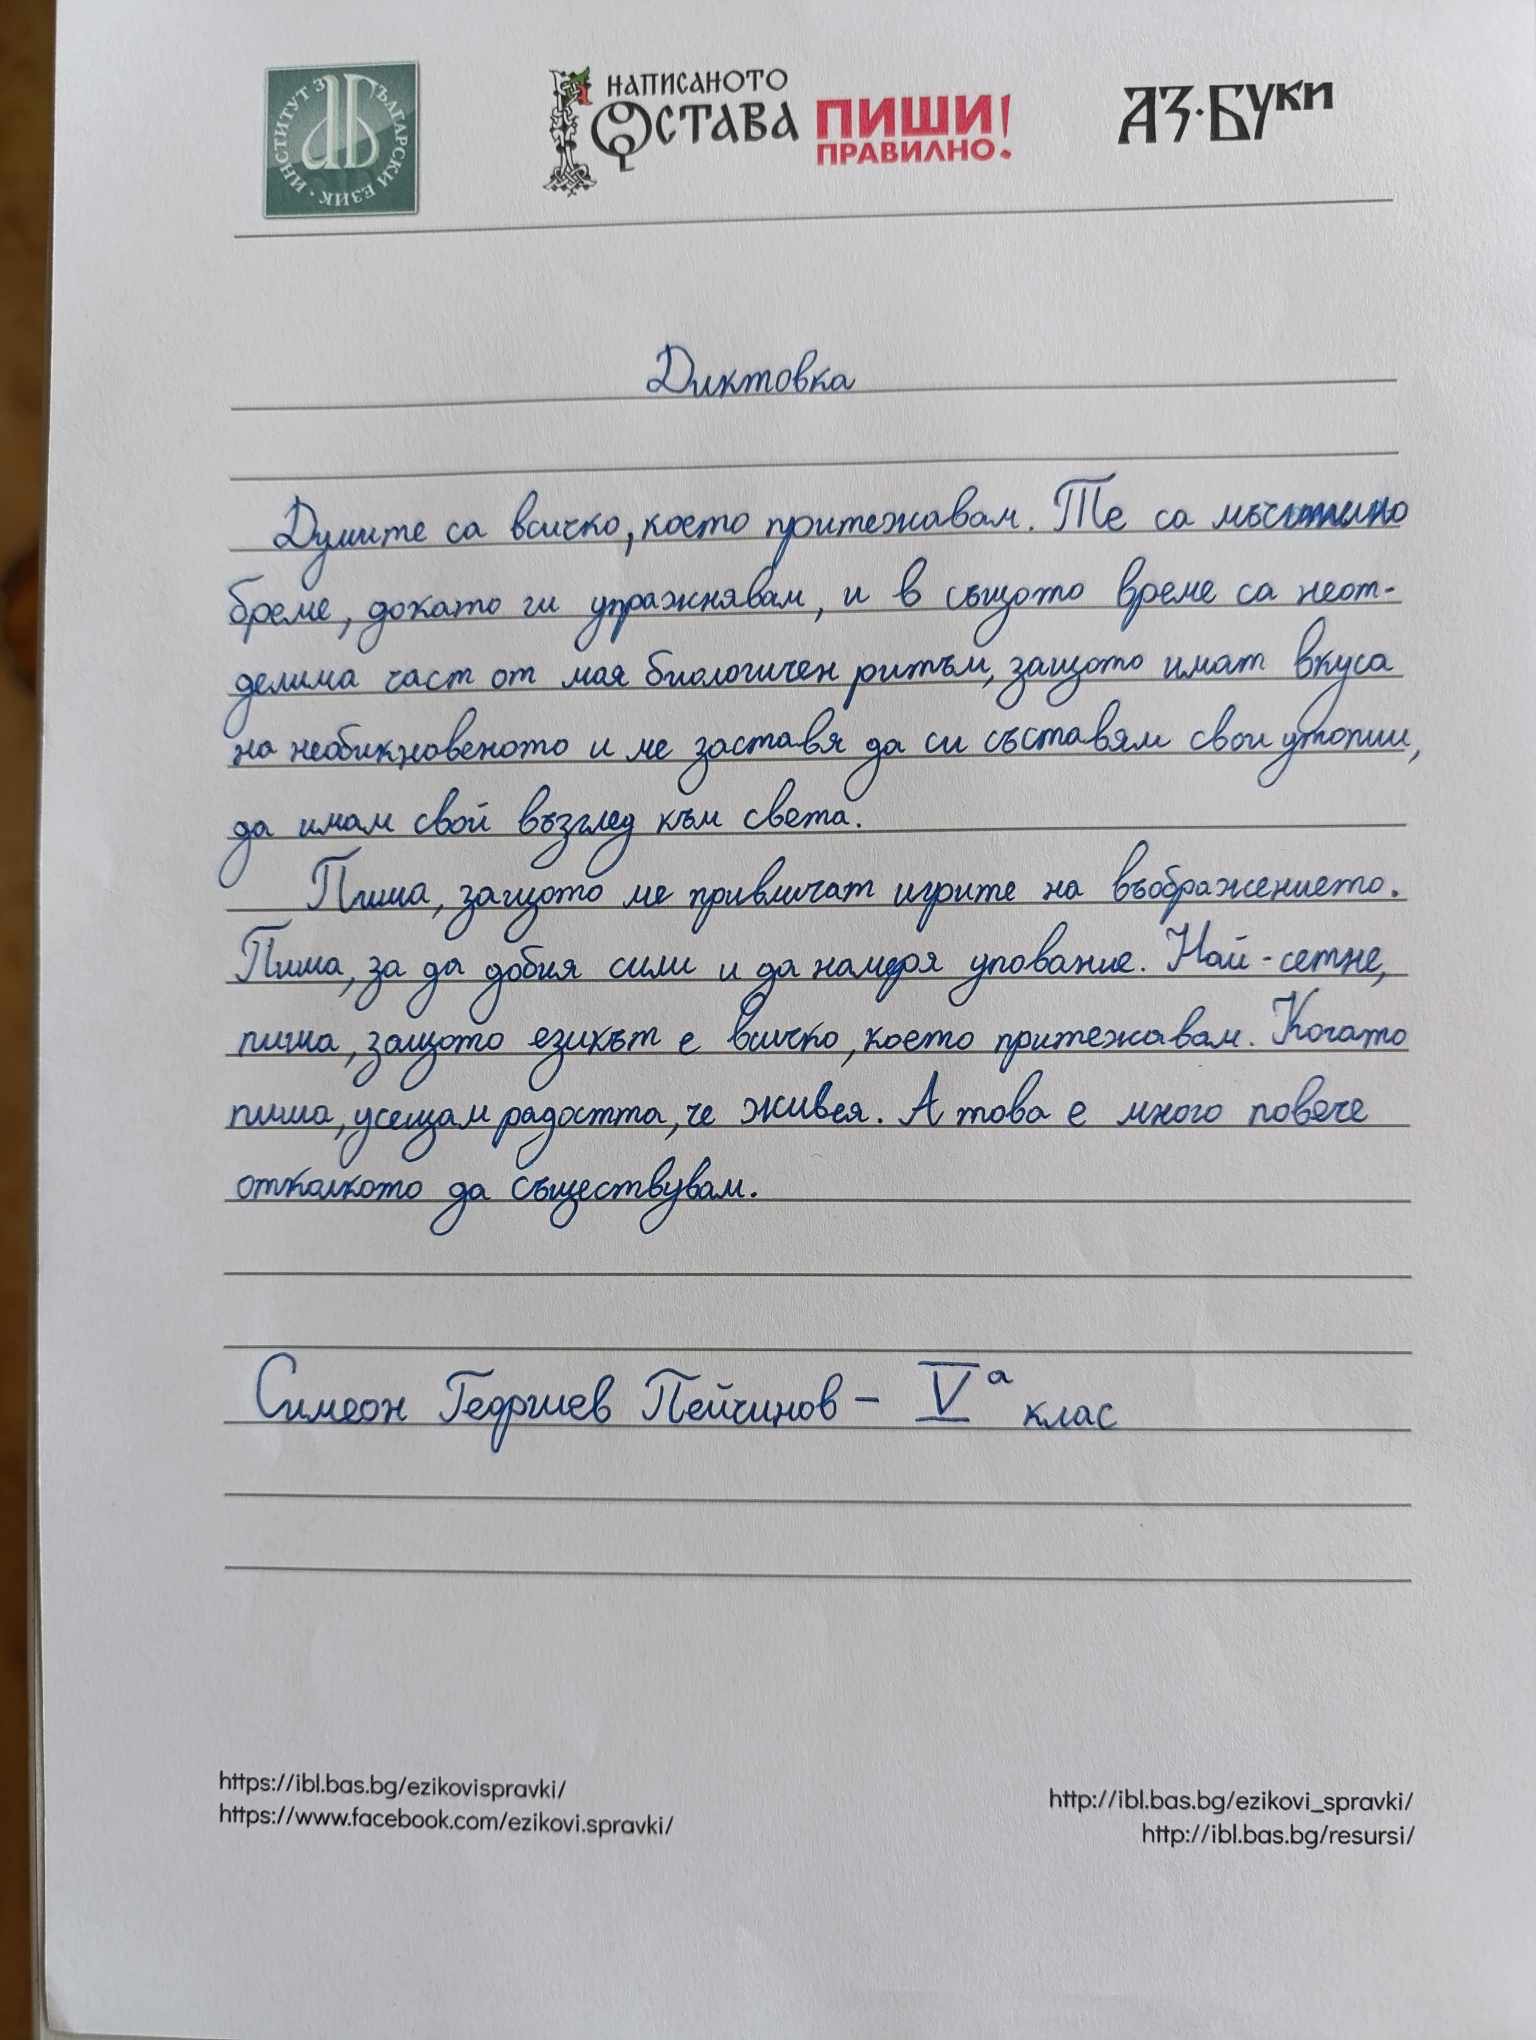 ИНСТИТУТ ЗА БЪЛГАРСКИ ЕЗИК
НАПИСАНОТО
ОСТАВА
ПИШИ
ПРАВИЛНО!
АЗ·БУКИ
Диктовка
Думите са всичко, което притежавам. Те са
бреме, докато ги упражнявам, и в същото време са неот-
делима част от мая биологичен ритъм, защото имат вкуса
на необикновеното и ме заставя да си съставям свои утопии,
да имам свой възглед към света.
Пиша, защото ме привличат игрите на въображението.
Пиша, за да добия сили и да намеря упование. Най-сетне,
пиша, защото езикът е всичко, което притежавам. Когато
пиша, усещам радостта, че живея. А това е много повече
отколкото да съществувам.
Симеон Георгиев Пейчинов – Vа клас
https://ibl.bas.bg/ezikovispravki/
https://www.facebook.com/ezikovi.spravki/
http://ibl.bas.bg/ezikovi_spravki/
http://ibl.bas.bg/resursi/